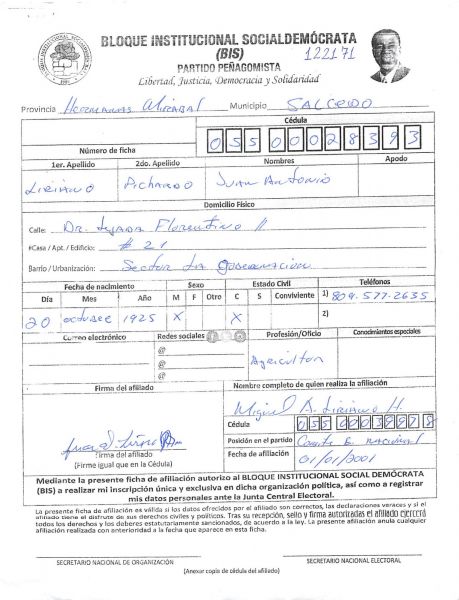 BLOQUE INSTITUCIONAL SOCIALDEMÓCRATA
(BIS)
122171
PARTIDO PEÑAGOMISTA
Libertad, Justicia, Democracia y Solidaridad
Provincia Hermanas Mirabal Municipio SALCEDO
Cédula
Número de ficha 05500028393
1er. Apellido 2do. Apellido Nombres Apodo
LIRIANO Pichardo Juan Antonio
Domicilio Físico
Calle: Dr. Tejada Florentino
#Casa / Apt. / Edificio: # 21
Barrio / Urbanización: Sector La Gobernacion
Fecha de nacimiento Sexo Estado Civil Teléfonos
Día Mes Año M F Otro C S Conviviente 1) 809-577-2635
20 octubre 1925 X X 2)
Correo electrónico Redes sociales Profesión/Oficio Conocimientos especiales
@
@ Agricultor
@
Firma del afiliado Nombre completo de quien realiza la afiliación
Miguel A. Liriano H.
Cédula 05500039978
Firma del afiliado Posición en el partido Comite E. nacional
(Firme igual que en la Cédula) Fecha de afiliación 01/01/2001
Mediante la presente ficha de afiliación autorizo al BLOQUE INSTITUCIONAL SOCIAL DEMÓCRATA
(BIS) a realizar mi inscripción única y exclusiva en dicha organización política, así como a registrar
mis datos personales ante la Junta Central Electoral.
La presente ficha de afiliación es válida si los datos ofrecidos por el afiliado son correctos, las declaraciones veraces y si el
afiliado tiene el disfrute de sus derechos civiles y políticos. Tras su recepción, sello y firma autorizadas el afiliado ejercerá
todos los derechos y los deberes estatutariamente sancionados, de acuerdo a la ley. La presente afiliación anula cualquier
afiliación realizada con anterioridad a la fecha que aparece en esta ficha.
SECRETARIO NACIONAL DE ORGANIZACIÓN SECRETARIO NACIONAL ELECTORAL
(Anexar copia de cédula del afiliado)